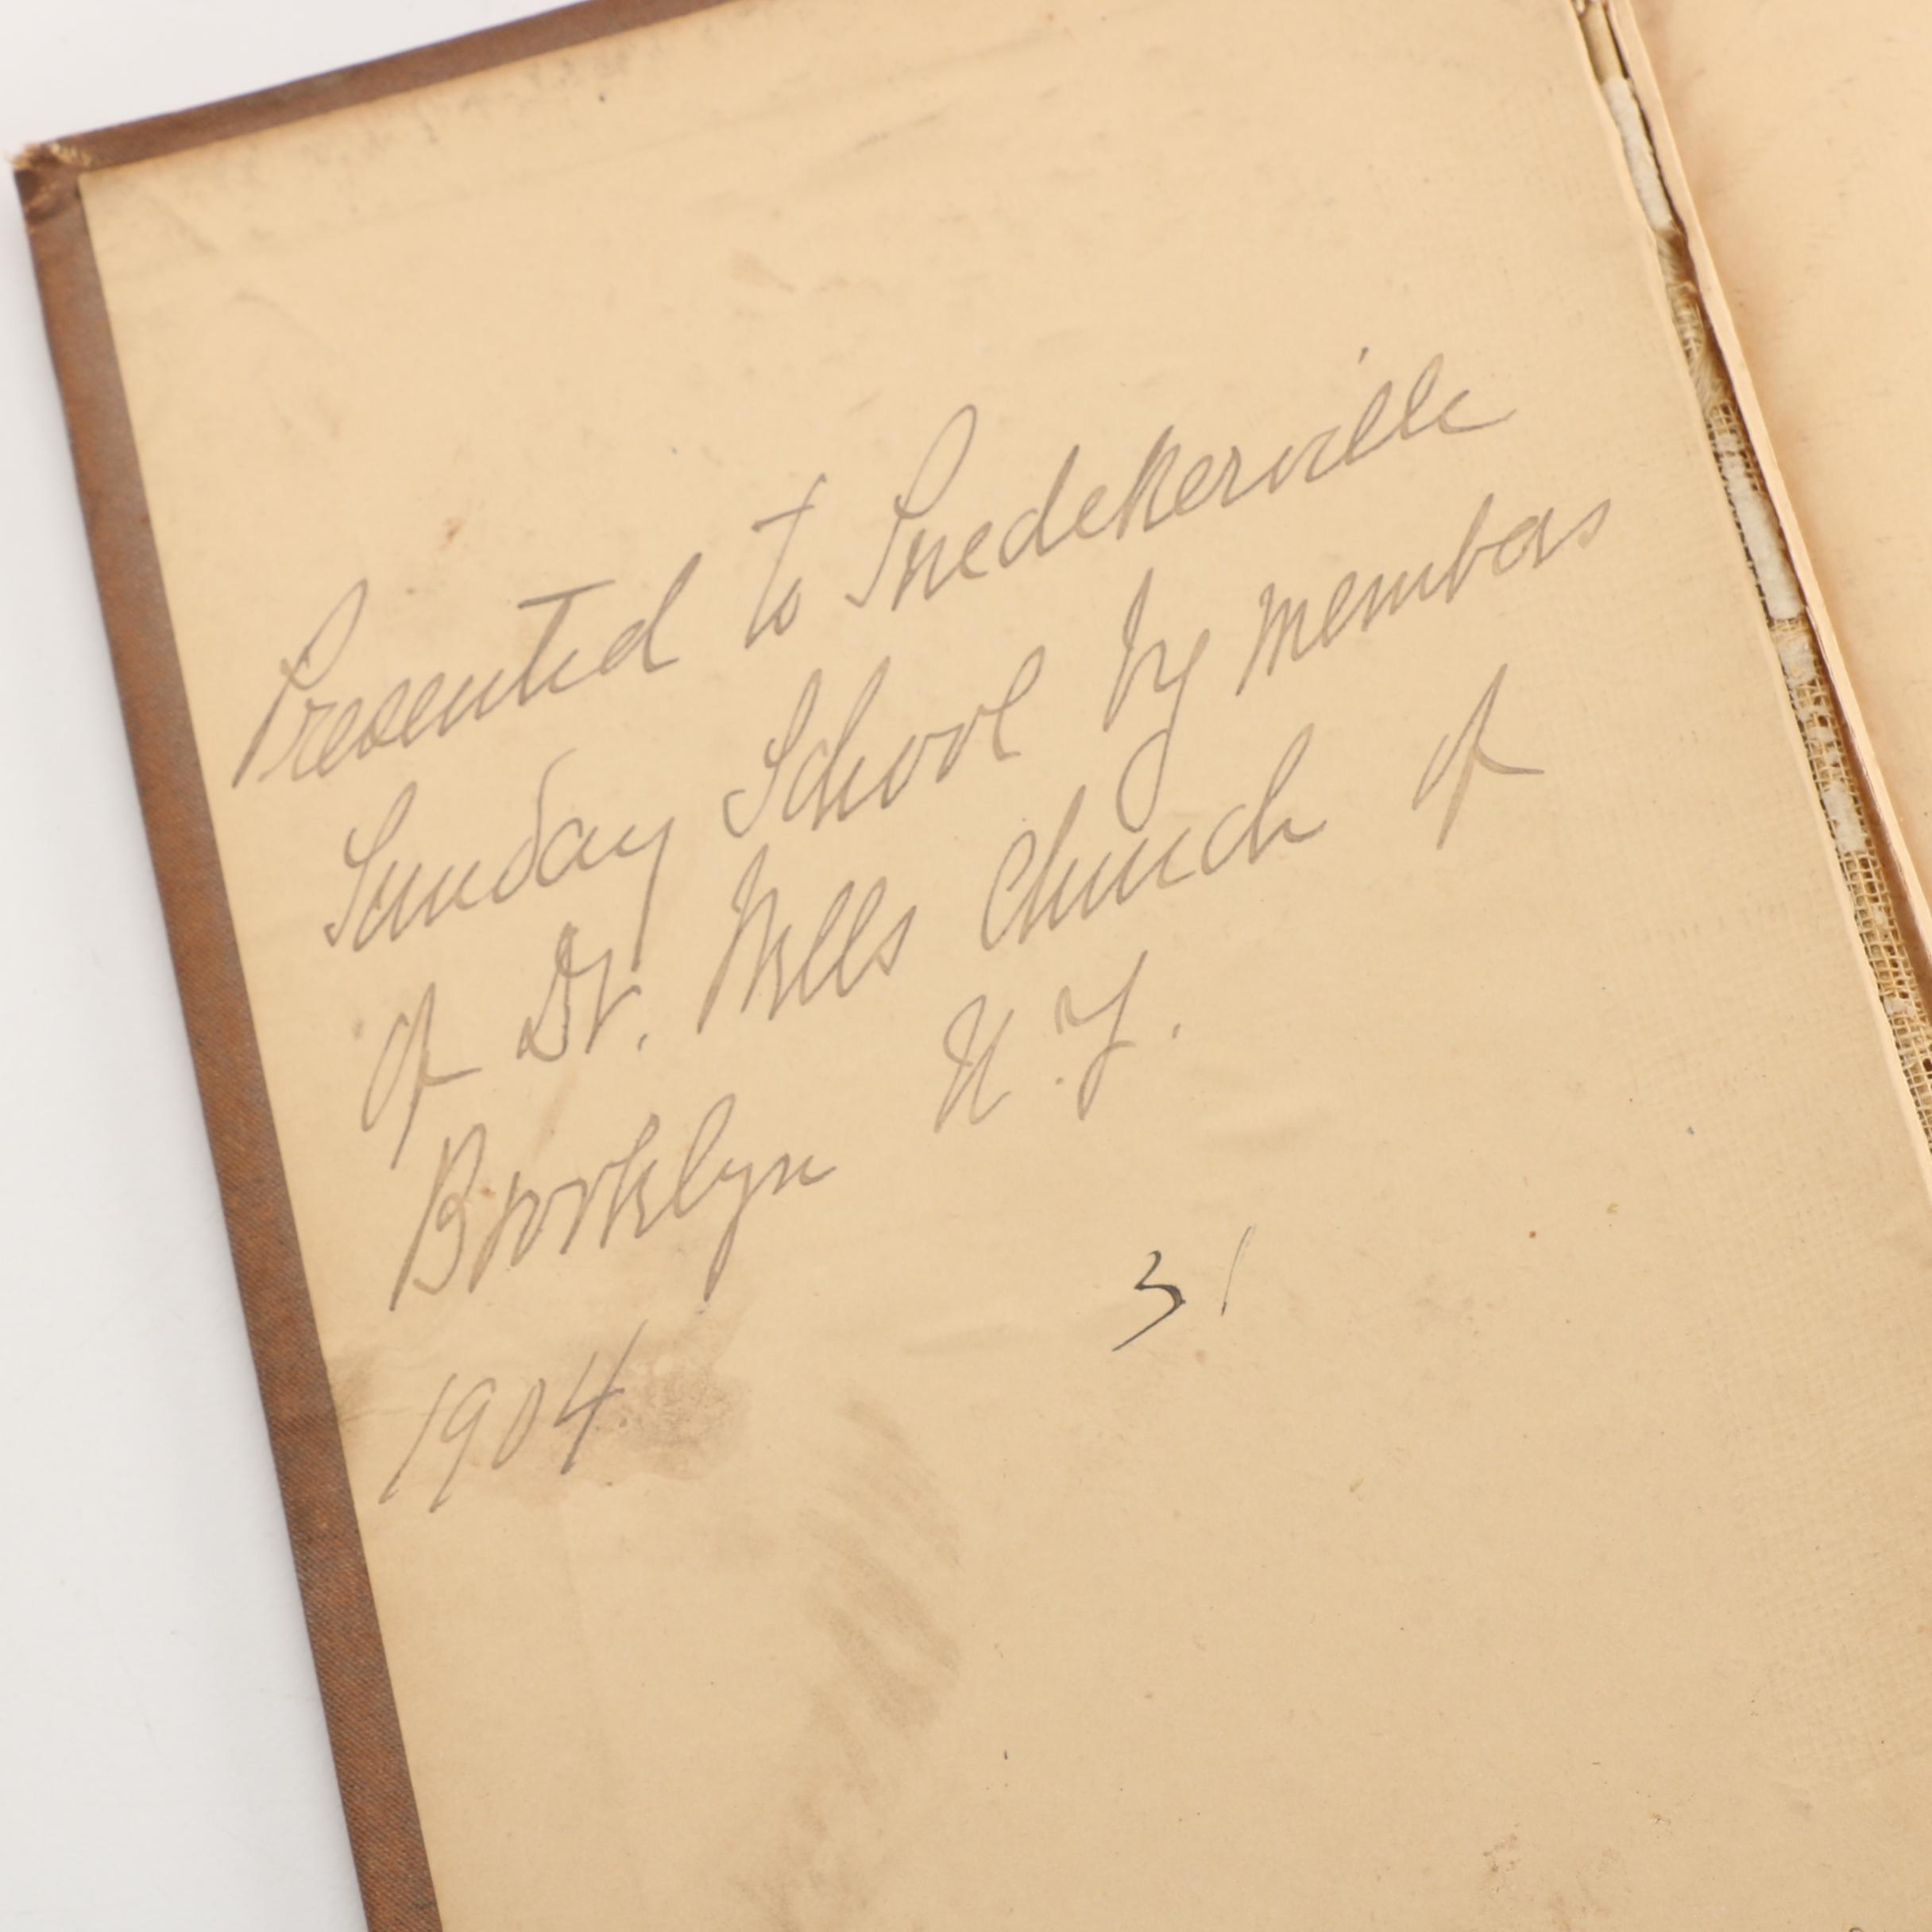 Presented to Snedekerville
Sunday School by members
of Dr. Wells Church of
Brooklyn N.Y.
31
1904